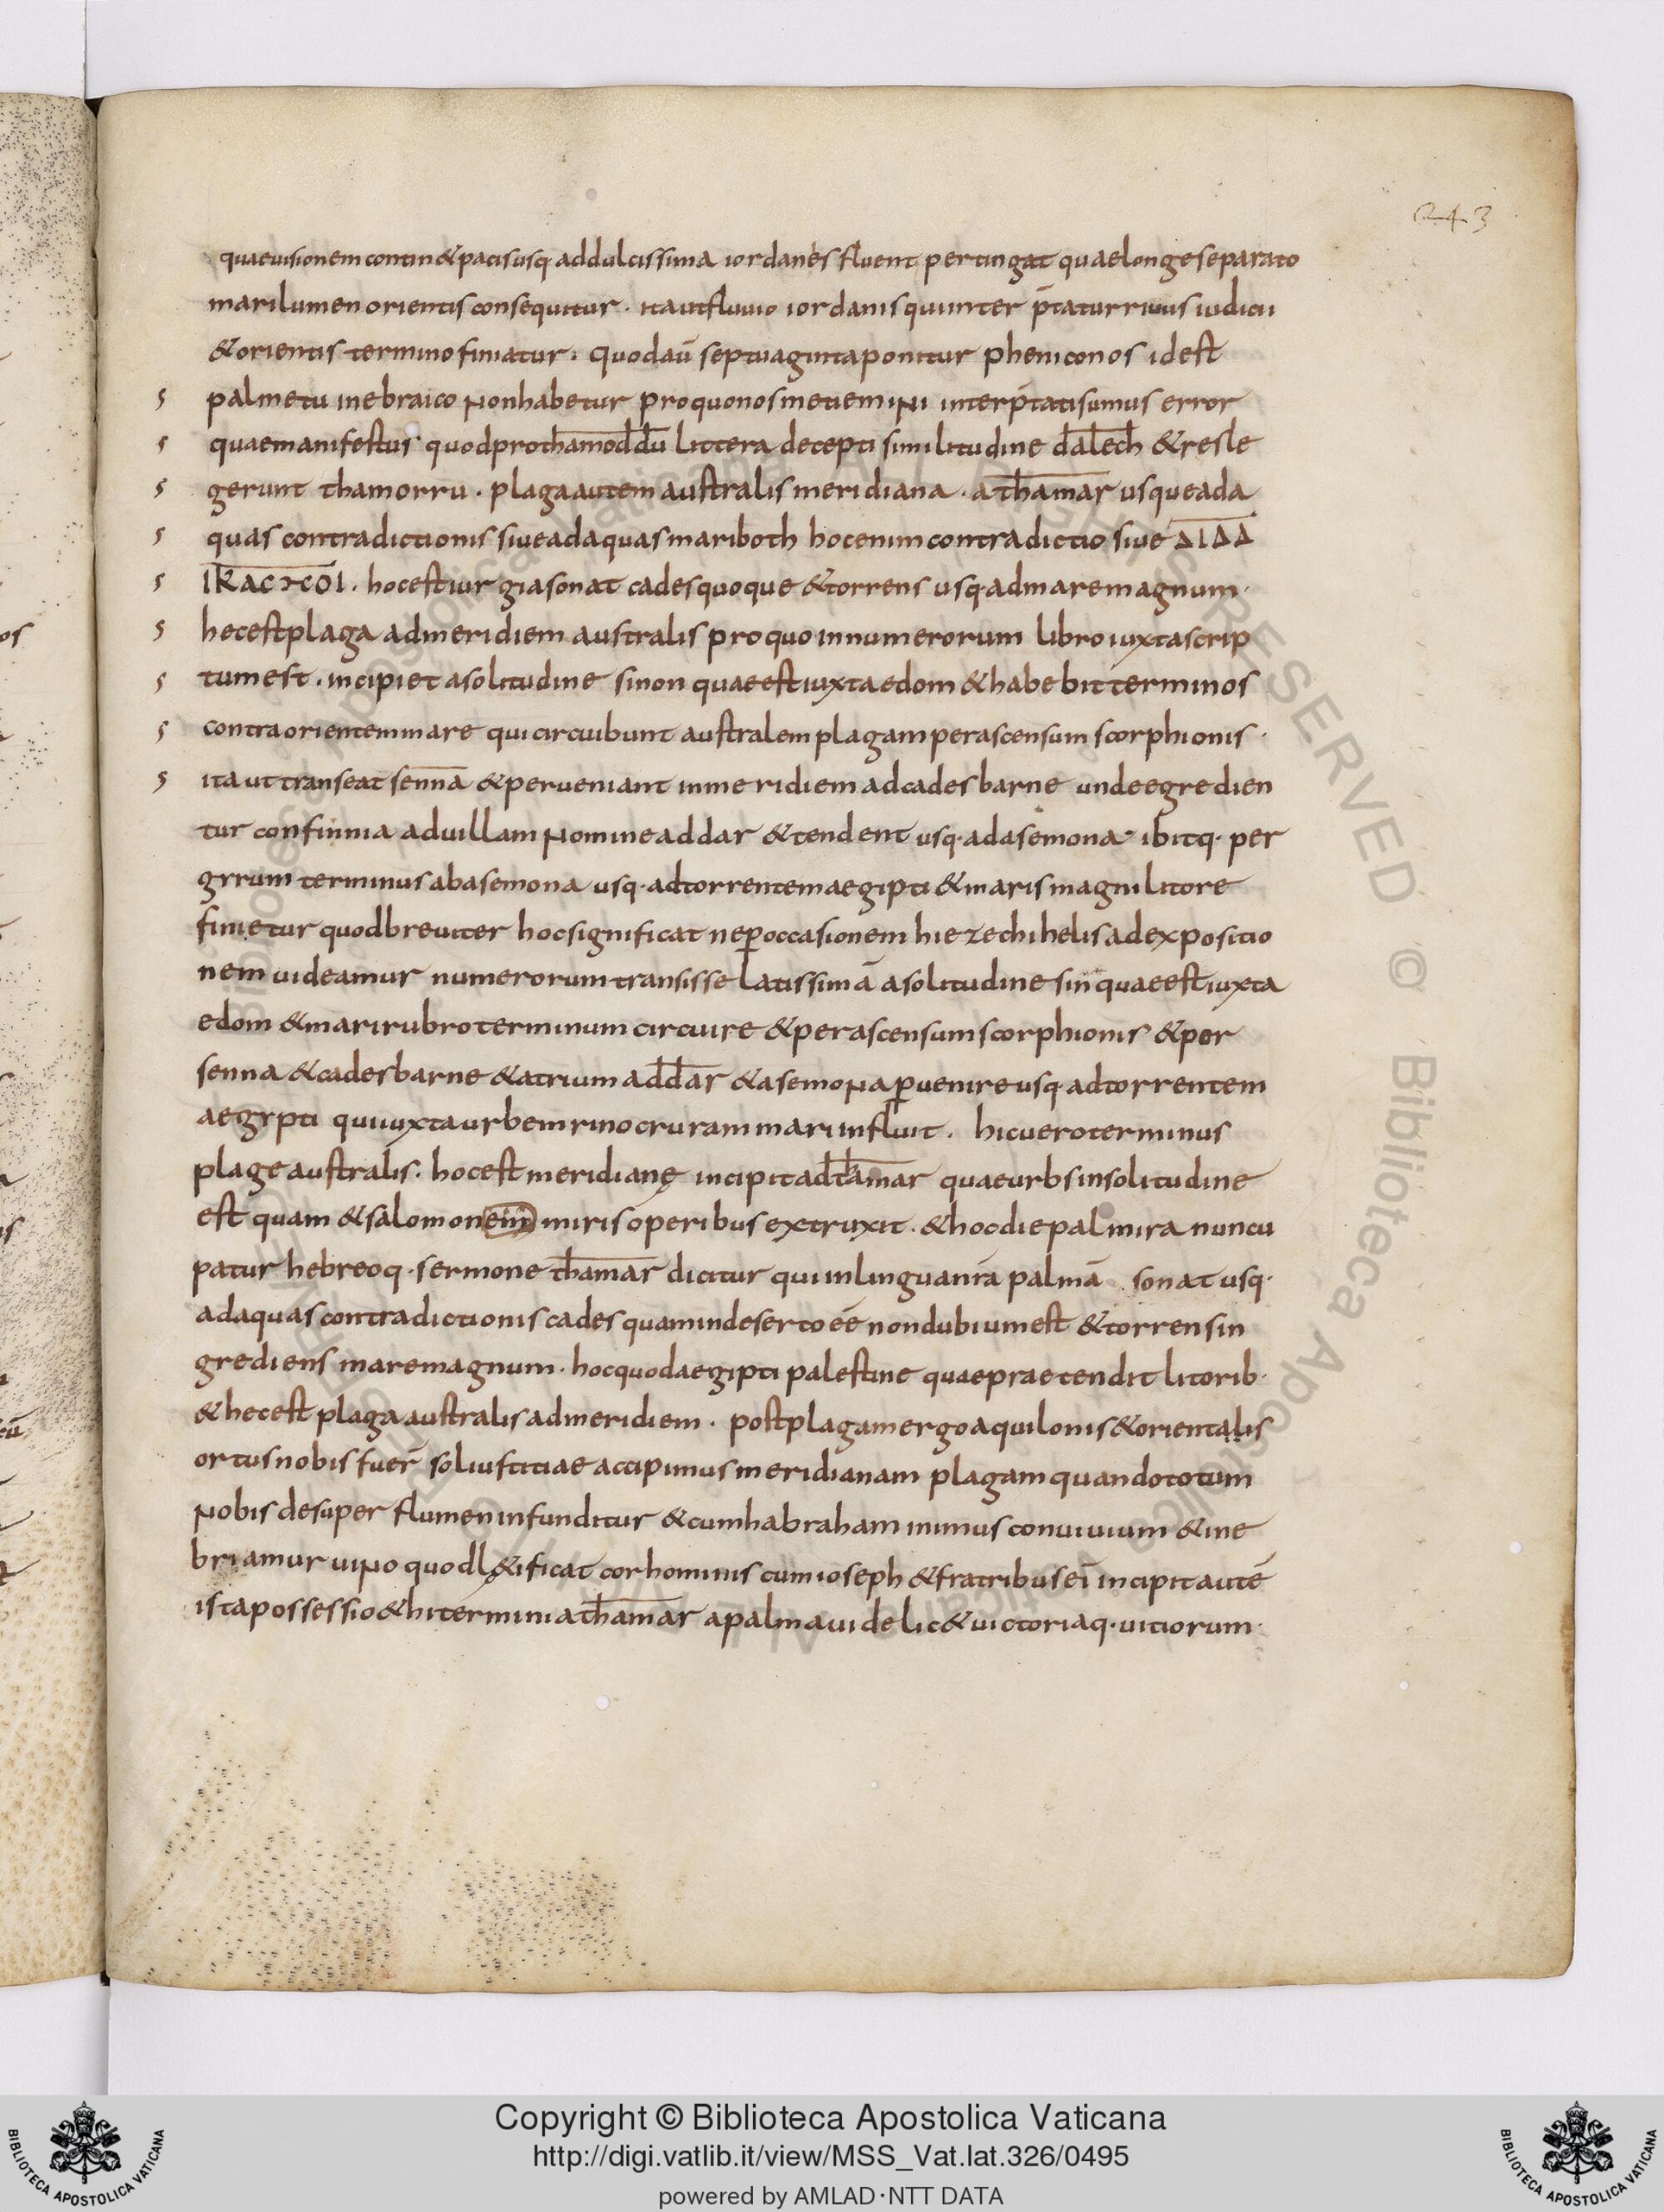 243
quaeuisionemcontin&pacisusq addulcissima iordanes fluent pertingat quaelongeseparato
marilumenorientisconsequitur · itautfluuio iordanisquiinter p̄taturriuus iudicii
&orientis terminofiniatur · quodaū septuagintaponitur pheniconos idest
palmetu inebraico nonhabetur proquonosmetiemini interp̄tatisumus error
quaemanifestus quodprothamoddu littera decepti similitudine dalech &resle
gerunt thamorru · plagaautem australis meridiana · a thamar usqueada
quas contradictionis siueadaquasmariboth hocenimcontradictio siue ΔΙΔΔ
ΙΚΑCΙCΟΙ · hocestiurgiasonat cadesquoque &torrens usq·admaremagnum ·
hecestplaga admeridiem australis proquoinnumerorum libroiuxtascrip
tumest · incipiet asolitudine sinon quaeestiuxtaedom &habebitterminos
contraorientemmare quicircuibunt australemplagamperascensum scorphionis ·
ita ut transeat sennā &perueniant inmeridiem adcadesbarne undeegredien
tur confinnia aduillam nomineaddar &tendent usq·adasemona ibitq· per
grrum terminus abasemona usq·adtorrentemaegipti &marismagnilitore
finietur quodbreuiter hocsignificat neꝑoccasionem hiezechihelis adexpositio
nem uideamur numerorumtransisse latissimā asolitudine sin quaeestiuxta
edom &marirubroterminum circuire &perascensumscorphionis &per
senna &cadesbarne &atrium addar &asemonaꝑuenireusq·adtorrentem
aegrpti quiiuxtaurbemrinocruram mariinfluit · hicueroterminus
plage australis · hocestmeridianę incipitadtamar quaeurbsinsolitudine
est quam &salomonem mirisoperibus extruxit · &hocdiepalmira nuncu
patur hebreoq· sermone thamar dicitur quiinlinguanr̄a palmā sonat usq·
adaquascontradictionis cades quamindesertoeē nondubiumest &torrensin
grediens maremagnum · hocquodaegipti palestine quaepraetendit litorib·
&hecest plagaaustralisadmeridiem · postplagamergoaquilonis&orientalis
ortusnobis fuer̄ soliustitiae accipimus meridianam plagamquandototum
nobis desuper flumeninfunditur &cumhabraham inimus conuiuium &ine
briamur uino quodl&ificat corhominis cumioseph &fratribusei̅ incipitautē
istapossessio&hitermini athamar apalmauidelic&uictoriaq·uitiorum·
Copyright © Biblioteca Apostolica Vaticana
http://digi.vatlib.it/view/MSS_Vat.lat.326/0495
powered by AMLAD·NTT DATA